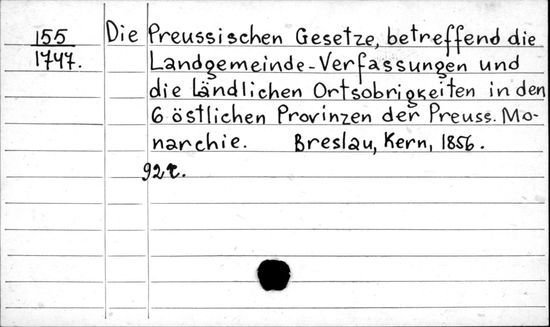 155 Die Preussischen Gesetze, betreffend die
1747. Landgemeinde-Verfassungen und
die ländlichen Ortsobrigkeiten in den
6 östlichen Provinzen der Preuss. Mo-
narchie. Breslau, Kern, 1856.